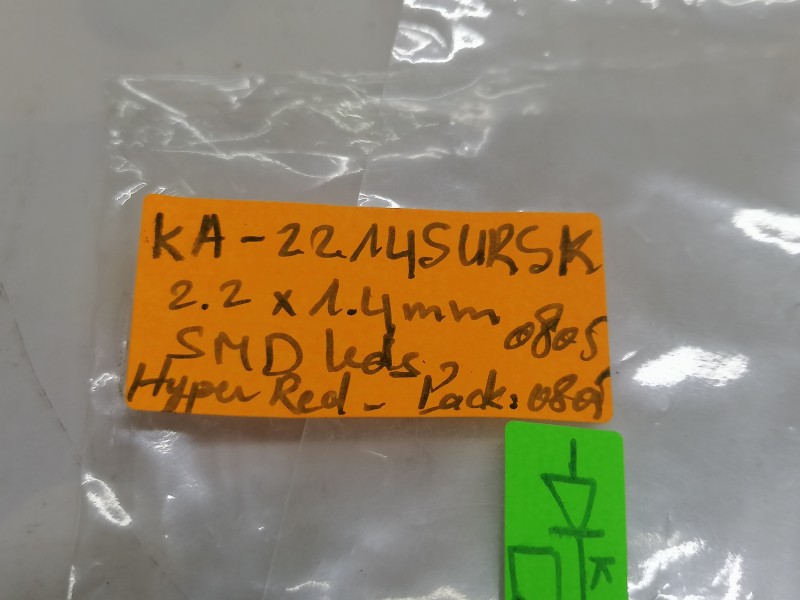 KA-2214SURSK
2.2 x 1.4mm 0805
SMD leds
Hyper Red - Pack: 0805
K